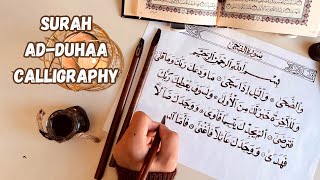 SURAH
AD-DUHAA
CALLIGRAPHY
سورة الضحى
بسم الله الرحمن الرحيم
والضحى والليل إذا سجى ما ودعك ربك وما قلى
وللآخرة خير لك من الأولى ولسوف يعطيك ربك
فترضى ألم يجدك يتيما فآوى ووجدك ضالا
فهدى ووجدك عائلا فأغنى فأما ال